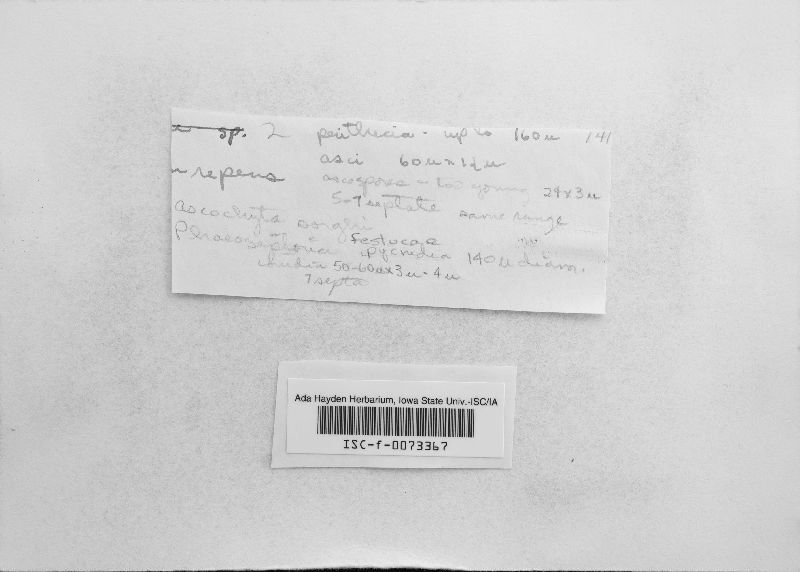 sp. 2 perithecia - up to 160u 141
asci 60u x 12u
repens ascospores - too young 24 x 3u
5-7 septate same range
Ascochyta sorghi
Phaeoseptoria festucae pycnidia 140u diam.
conidia 50-60u x 3u-4u
7 septa
Ada Hayden Herbarium, Iowa State Univ.-ISC/IA
ISC-f-0073367